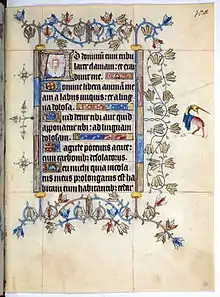 104
d dominum cum tribu
larer clamavi: et exau
divit me.
Domine libera animam me
am a labiis iniquis: et a lin
gua dolosa.
Quid detur tibi aut quid
apponatur tibi: ad linguam
dolosam.
Sagitte potentis acute:
cum carbonibus desolatoriis.
eu michi quia incola
tus meus prolongatus est ha
bitavi cum habitantibus cedar